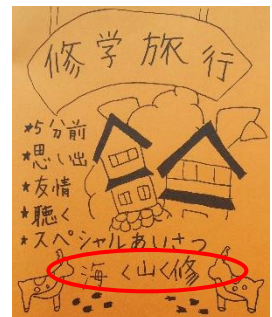 修学旅行
*5分前
*思い出
*友情
*聴く
*スペシャルあいさつ
海く山く修